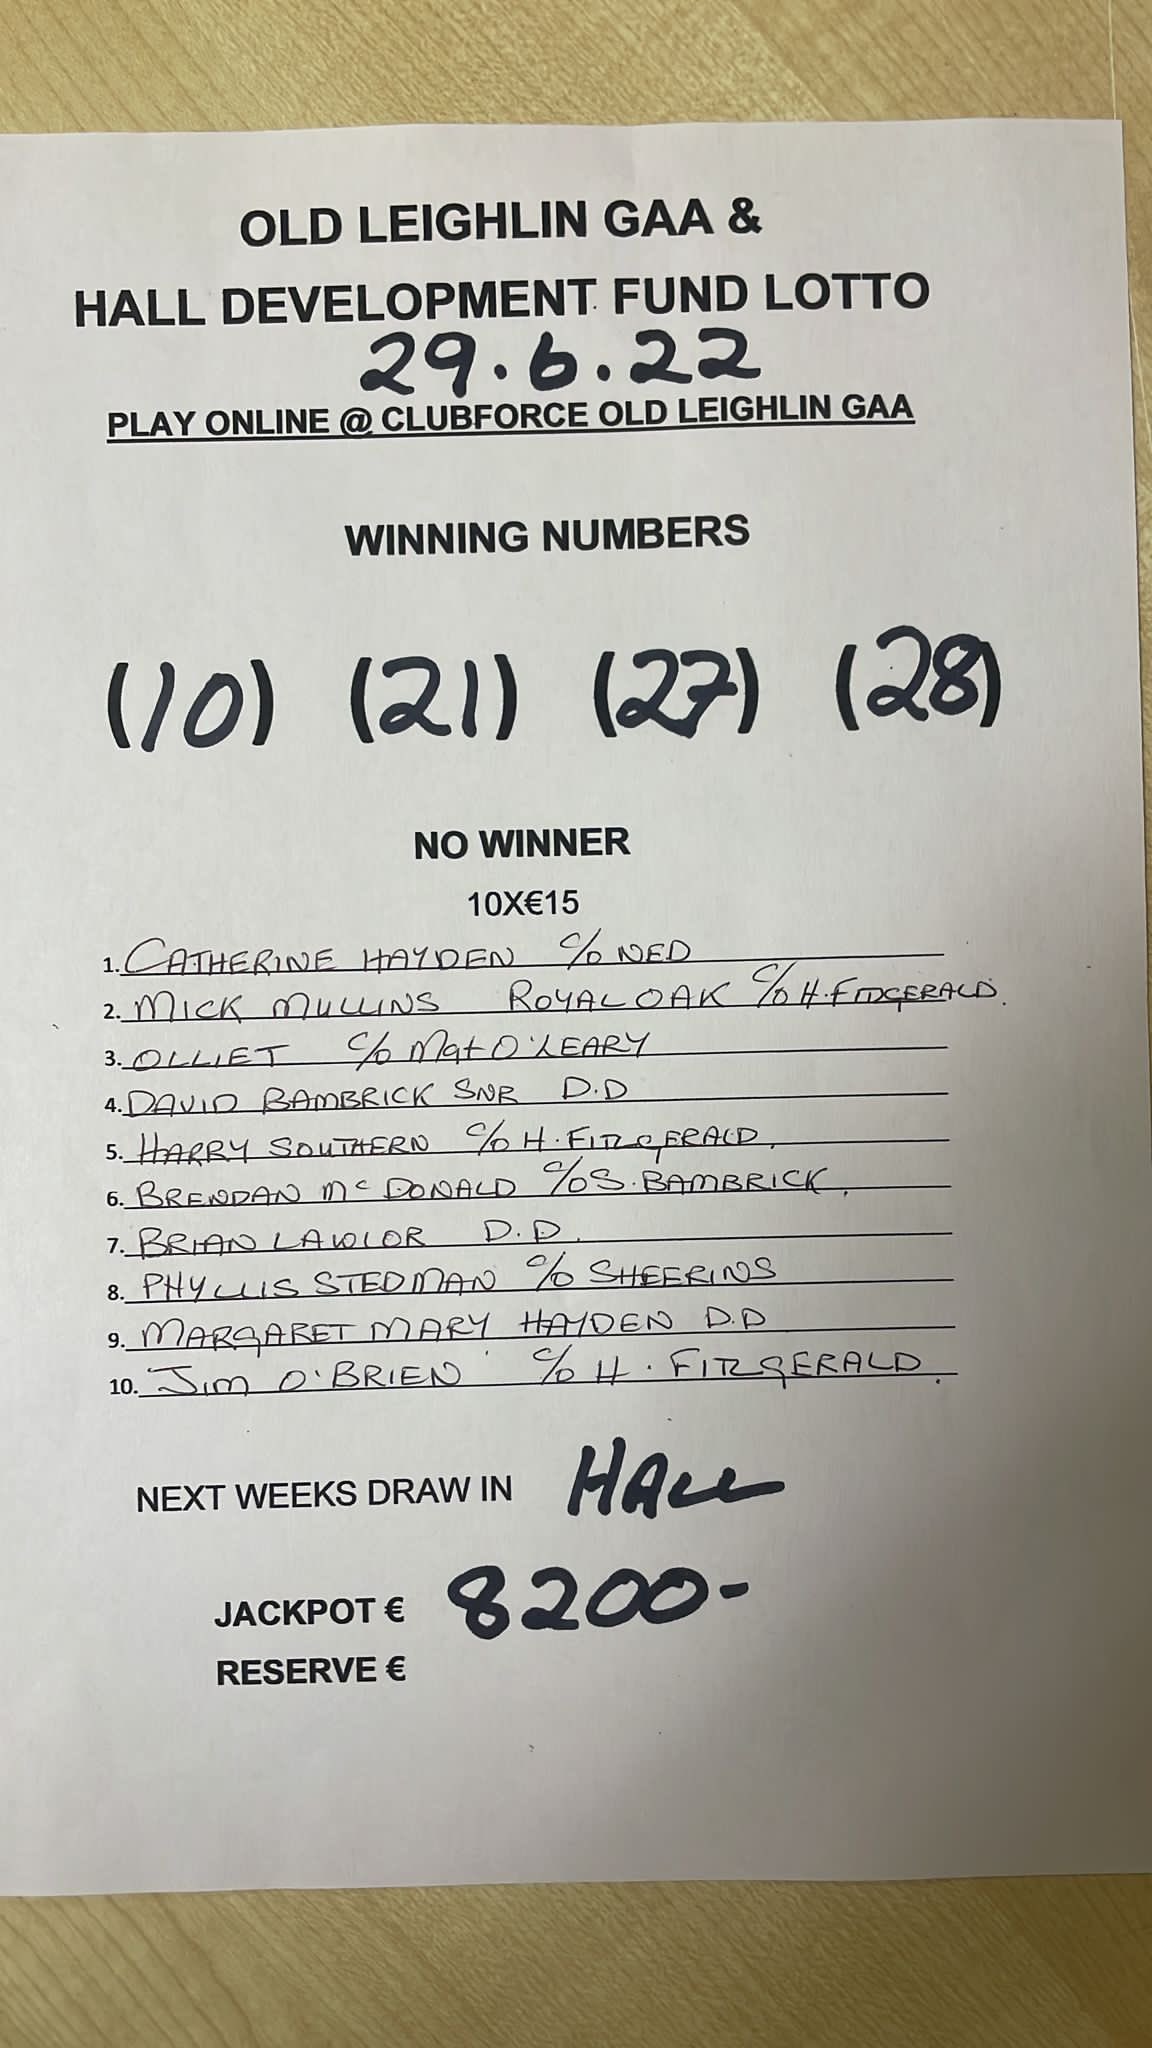 OLD LEIGHLIN GAA &
HALL DEVELOPMENT FUND LOTTO
29.6.22
PLAY ONLINE @ CLUBFORCE OLD LEIGHLIN GAA
WINNING NUMBERS
(10) (21) (27) (28)
NO WINNER
10X€15
1. CATHERINE HAYDEN C/O NED
2. MICK MULLINS ROYAL OAK C/O H. FITZGERALD.
3. OLLIET C/O Mat O'LEARY
4. DAVID BAMBRICK SNR D.D
5. HARRY SOUTHERN C/O H. FITZGERALD.
6. BRENDAN McDONALD C/O S. BAMBRICK.
7. BRIAN LAWLOR D.D.
8. PHYLLIS STEDMAN C/O SHEERINS
9. MARGARET MARY HAYDEN D.D
10. JIM O'BRIEN C/O H. FITZGERALD.
NEXT WEEKS DRAW IN HALL
JACKPOT € 8200-
RESERVE €